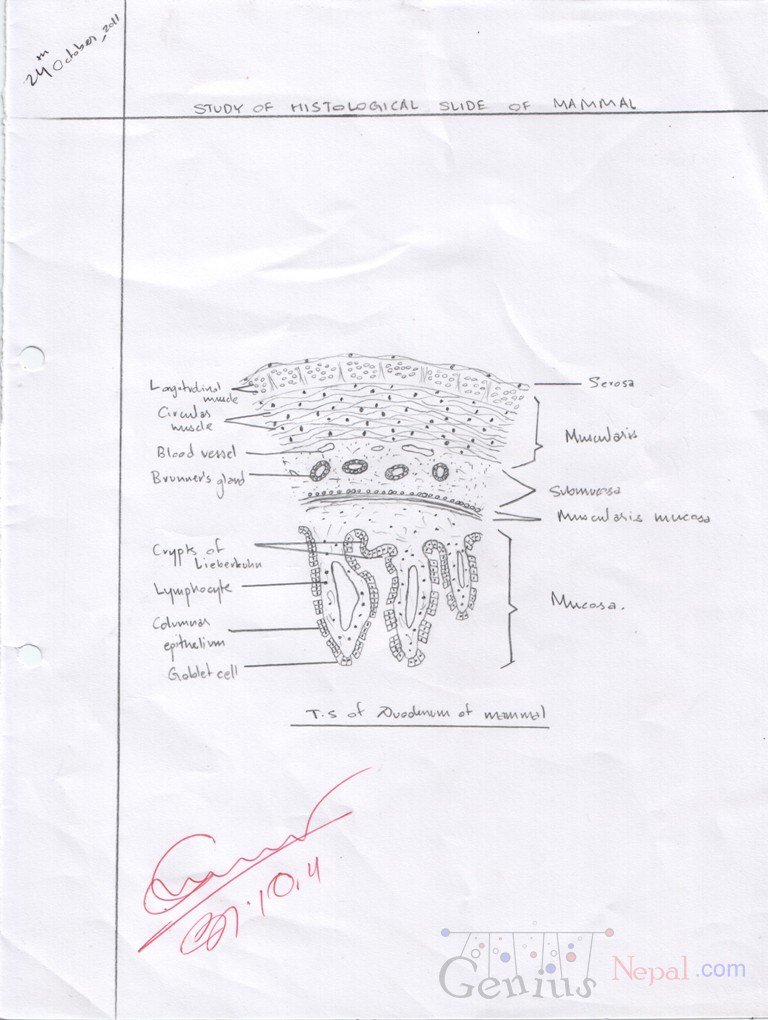 24th October, 2011
STUDY OF HISTOLOGICAL SLIDE OF MAMMAL
Longitudinal
muscle
Circular
muscle
Blood vessel
Brunner's gland
Crypts of
Lieberkuhn
Lymphocyte
Columnar
epithelium
Goblet cell
Serosa
Muscularis
Submucosa
Muscularis mucosa
Mucosa.
T.S of Duodenum of mammal
Genius Nepal.com